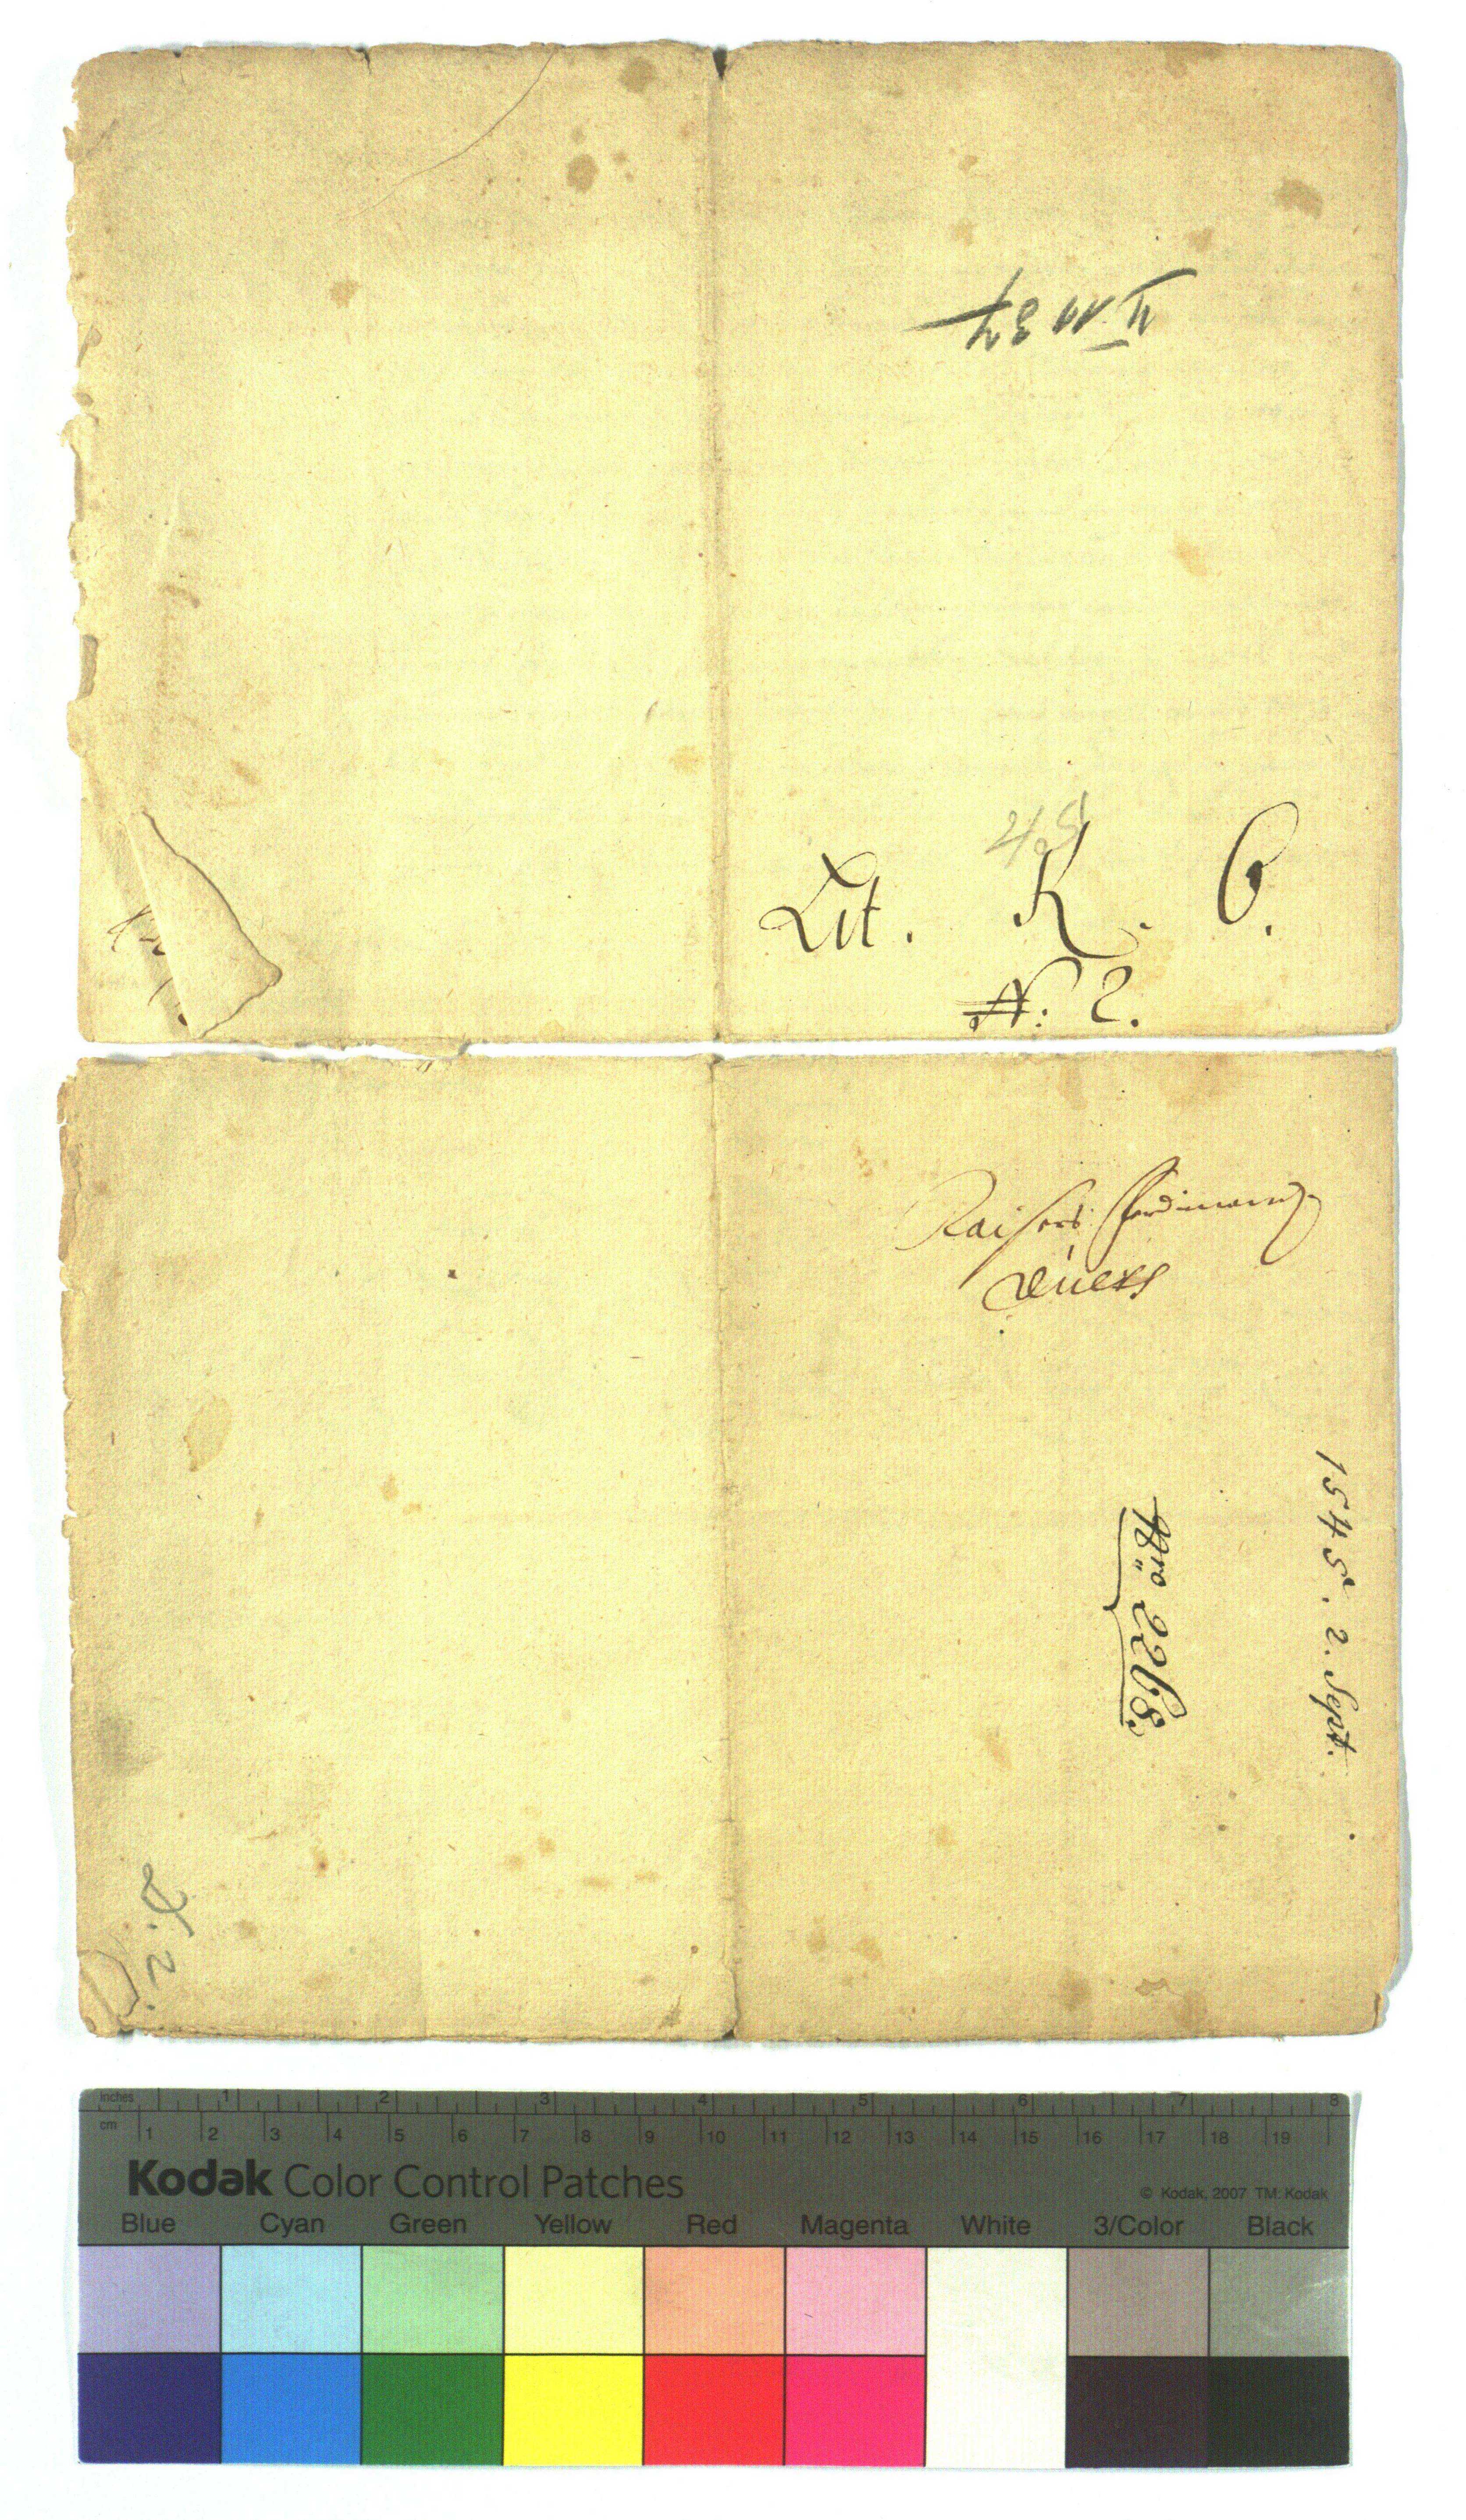 II 11 37
Lit. K. 6.
N: 2.
Kaisers Ferdinand
1545. 2. Sept.
Nro 2268.
D. 2.
inches 1 2 3 4 5 6 7 8
cm 1 2 3 4 5 6 7 8 9 10 11 12 13 14 15 16 17 18 19
Kodak Color Control Patches
© Kodak, 2007 TM: Kodak
Blue Cyan Green Yellow Red Magenta White 3/Color Black